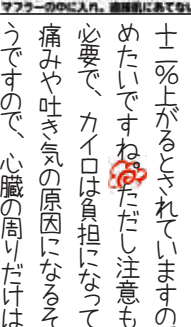 マフラーの中に入れ、直接肌にあてな
十二%上がるとされていますの
めたいですね。ただし注意も
必要で、カイロは負担になって
痛みや吐き気の原因になるそ
うですので、心臓の周りだけは